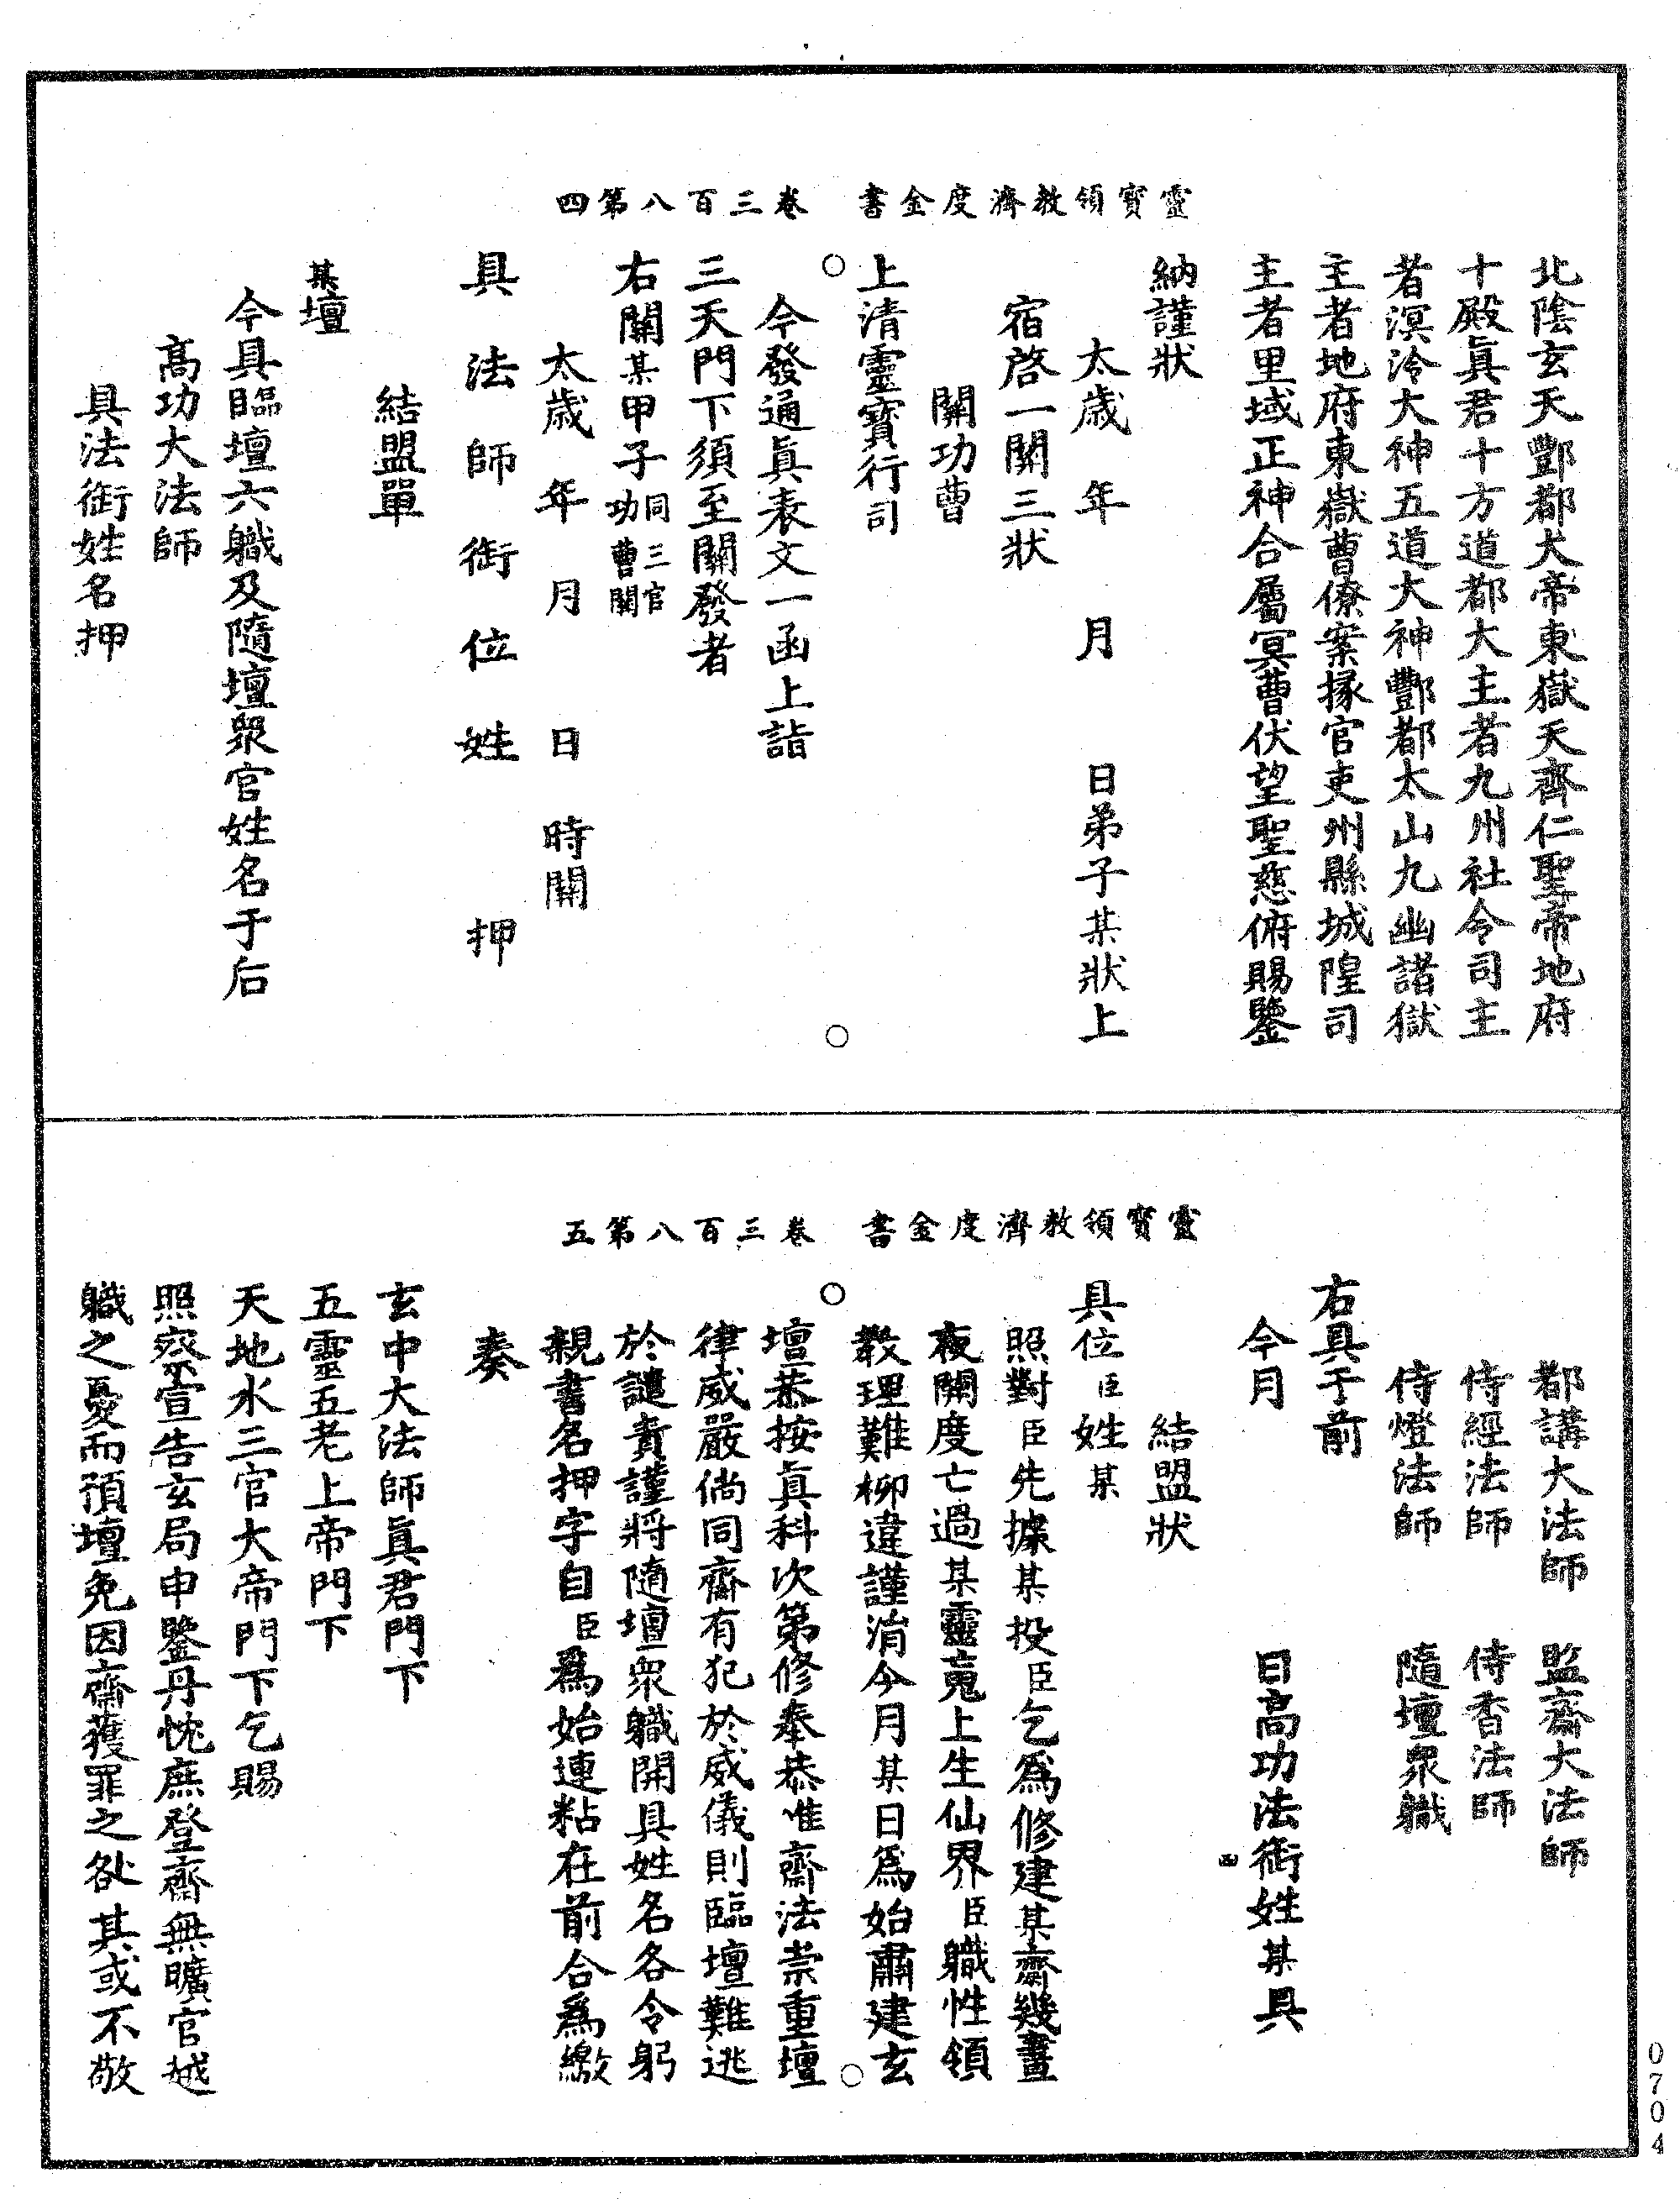 靈寶領教濟度金書　卷三百八第四
北陰玄天酆都大帝東嶽天齊仁聖帝地府
十殿眞君十方道都大主者九州社令司主
者溟泠大神五道大神酆都太山九幽諸獄
主者地府東嶽曹僚案掾官吏州縣城隍司
主者里域正神合屬冥曹伏望聖慈俯賜鑒
納謹狀
太歲　年　月　日弟子某狀上
宿啓一關三狀
關功曹
上清靈寶行司
今發通眞表文一函上詣
三天門下須至關發者
右關某甲子功曹同三官關
太歲　年　月　日　時關
具法師銜位姓　押
結盟單
某壇
今具臨壇六職及隨壇眾官姓名于后
高功大法師
具法銜姓名押
靈寶領教濟度金書　卷三百八第五
都講大法師　監齋大法師
侍經法師　侍香法師
侍燈法師　隨壇眾職
右具于前
今月　日高功法銜姓某具
結盟狀
具位臣姓某
照對臣先據某投臣乞爲修建某齋幾晝
夜關度亡過某靈䰟上生仙界臣職性領
教理難抑違謹涓今月某日爲始肅建玄
壇恭按眞科次第修奉恭惟齋法崇重壇
律威嚴倘同齋有犯於威儀則臨壇難逃
於譴責謹將隨壇眾職開具姓名各令躬
親書名押字自臣爲始連粘在前合爲繳
奏
玄中大法師眞君門下
五靈五老上帝門下
天地水三官大帝門下乞賜
照察宣告玄局申鑒丹忱庶登齋無曠官越
職之憂而預壇免因齋獲罪之咎其或不敬
四
0704